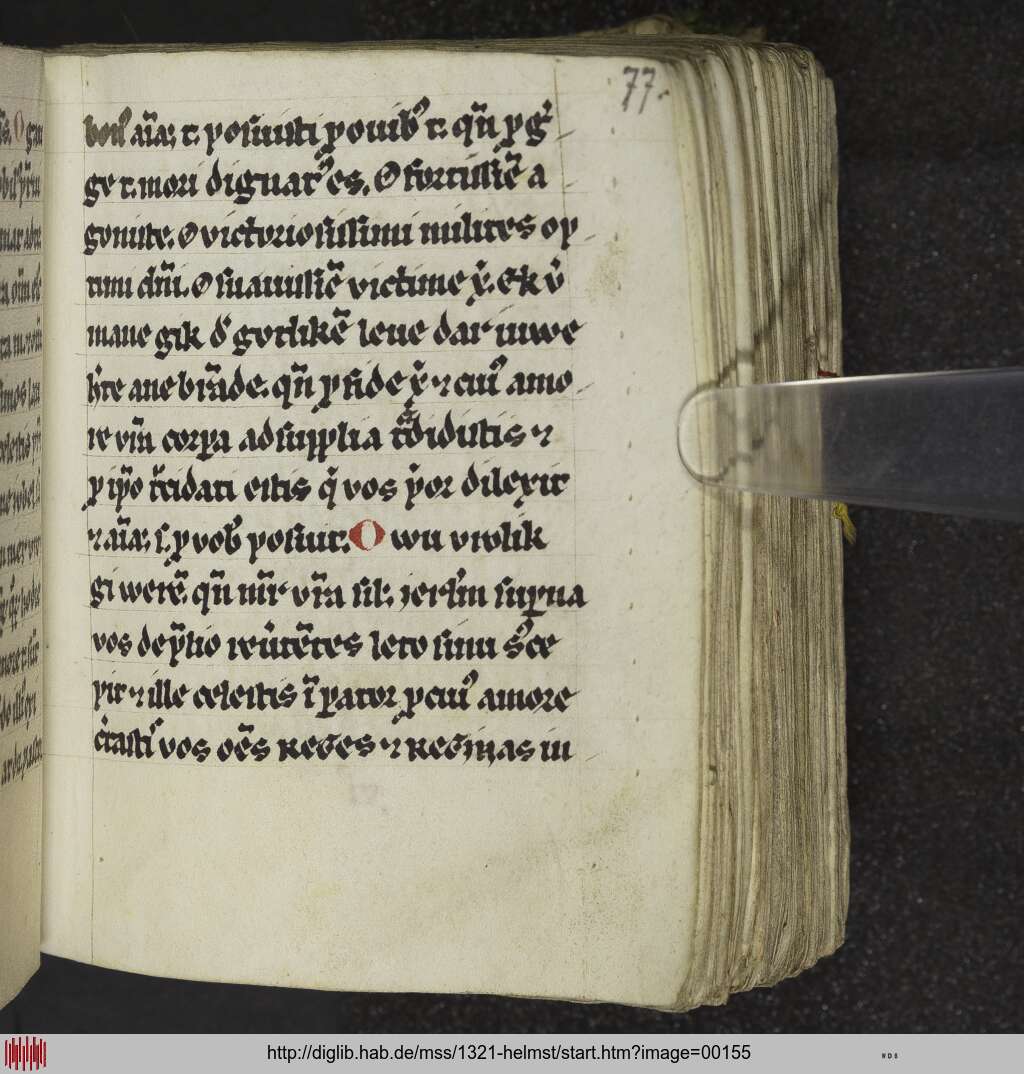 77.
aīa; t. posuisti p ouib9 t. qn̄ p gͥ
ge t. mori dignat9 es. O fortissiē a
goniste. O victoriosissimi milites op
timi dn̄i. O suauissiē victime xͥ. Ek vͥ
mane gik dͦ gotlikē leue dar iuwe
h̾te ane brāde. qn̄ p fide xͥ ⁊ cui9 amo
re vr̄m corpa ad supplia t̄didistis ⁊
p ip̄o t̾cidati estis qͥ vos pͥor dilexit
⁊ aīa; s. p vob̾ posiut. O wu vrolik
gi werē qn̄ mr̄ vr̄a sil; jerl̄m supna
vos de p̄lio reu̾tētes leto sinu s9ce
pit ⁊ ille celestis īpator p cui9 amore
vos oēs reges ⁊ reginas in
http://diglib.hab.de/mss/1321-helmst/start.htm?image=00155